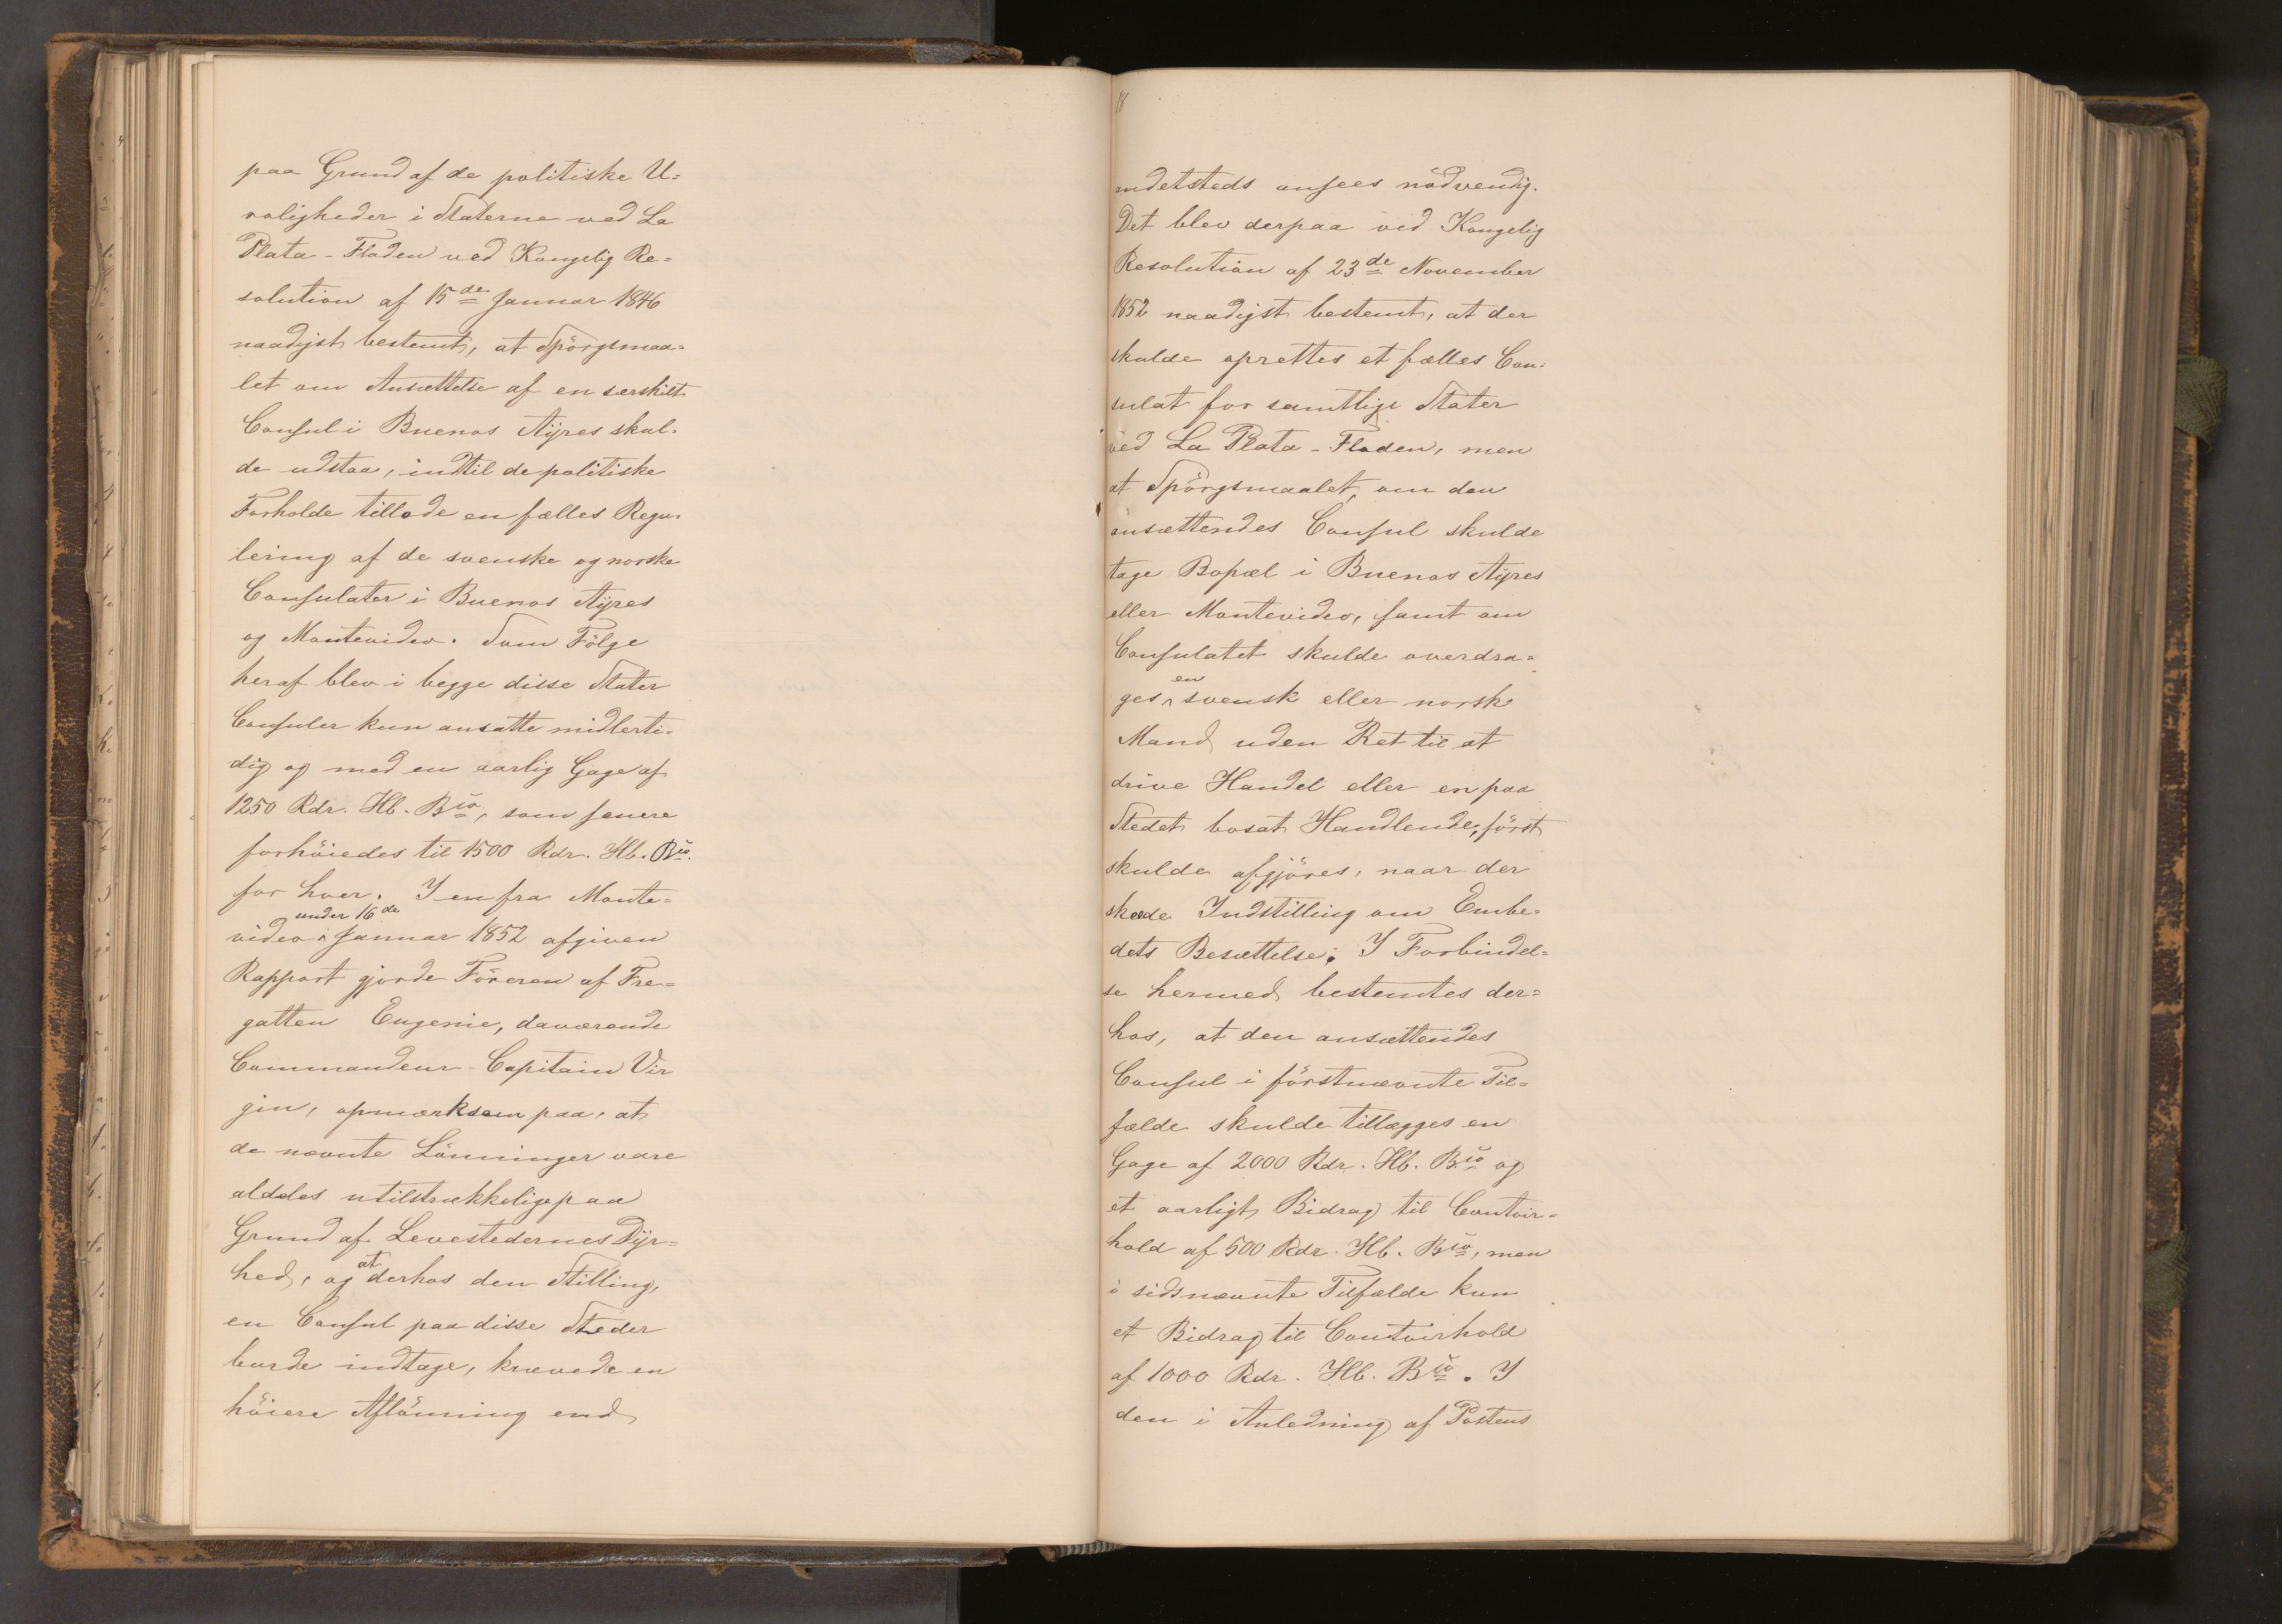 paa Grund af de politiske U=
roligheder i Staterne ved La
Plata-Floden ved Kongelig Re=
solution af 15de Januar 1846
naadigst bestemt, at Spörgsmaa=
let om Ansættelse af en særskilt
Consul i Buenos Ayres skul=
de udstaa, indtil de politiske
Forholde tillode en fælles Regu=
lering af de svenske og norske
Consulater i Buenos Ayres
og Montevideo. Som Fölge
heraf blev i begge disse Stater
Consuler kun ansatte midlerti=
dig og med en aarlig Gage af
1250 Rdr. Hb. Bco, som senere
forhöiedes til 1500 Rdr. Hb. Bco.
for hver. I en fra Monte=
under 16de
video Januar 1852 afgiven
Rapport gjorde Föreren af Fre=
gatten Eugenie, daværende
Commandeur-Capitain Vir
gin, opmærksom paa, at
de nævnte Lönninger vare
aldeles utilstrækkelige paa
Grund af Levestedernes Dyr=
at
hed, og derhos den Stilling,
en Consul paa disse Steder
burde indtage, krævede en
höiere Aflönning end
18
andetsteds ansees nödvendig.
Det blev derpaa ved Kongelig
Resolution af 23de November
1852 naadigst bestemt, at der
skulde oprettes et fælles Con=
sulat for samtlige Stater
ved La Plata-Floden, men
at Spörgsmaalet, om den
ansættendes Consul skulde
tage Bopæl i Buenos Ayres
eller Montevideo, samt om
Consulatet skulde overdra=
en
ges svensk eller norsk
Mand uden Ret til at
drive Handel eller en paa
Stedet bosat Handlende, först
skulde afgjöres, naar der
skede Indstilling om Embe=
dets Besættelse; I Forbindel=
se hermed bestemtes der=
hos, at den ansættendes
Consul i förstnævnte Til=
fælde skulde tillægges en
Gage af 2000 Rdr. Hb. Bco og
et aarligt Bidrag til Contoir=
hold af 500 Rdr. Hb. Bco, men
i sidsnævnte Tilfælde kun
et Bidrag til Contoirhold
af 1000 Rdr. Hb. Bco. I
den i Anledning af Postens